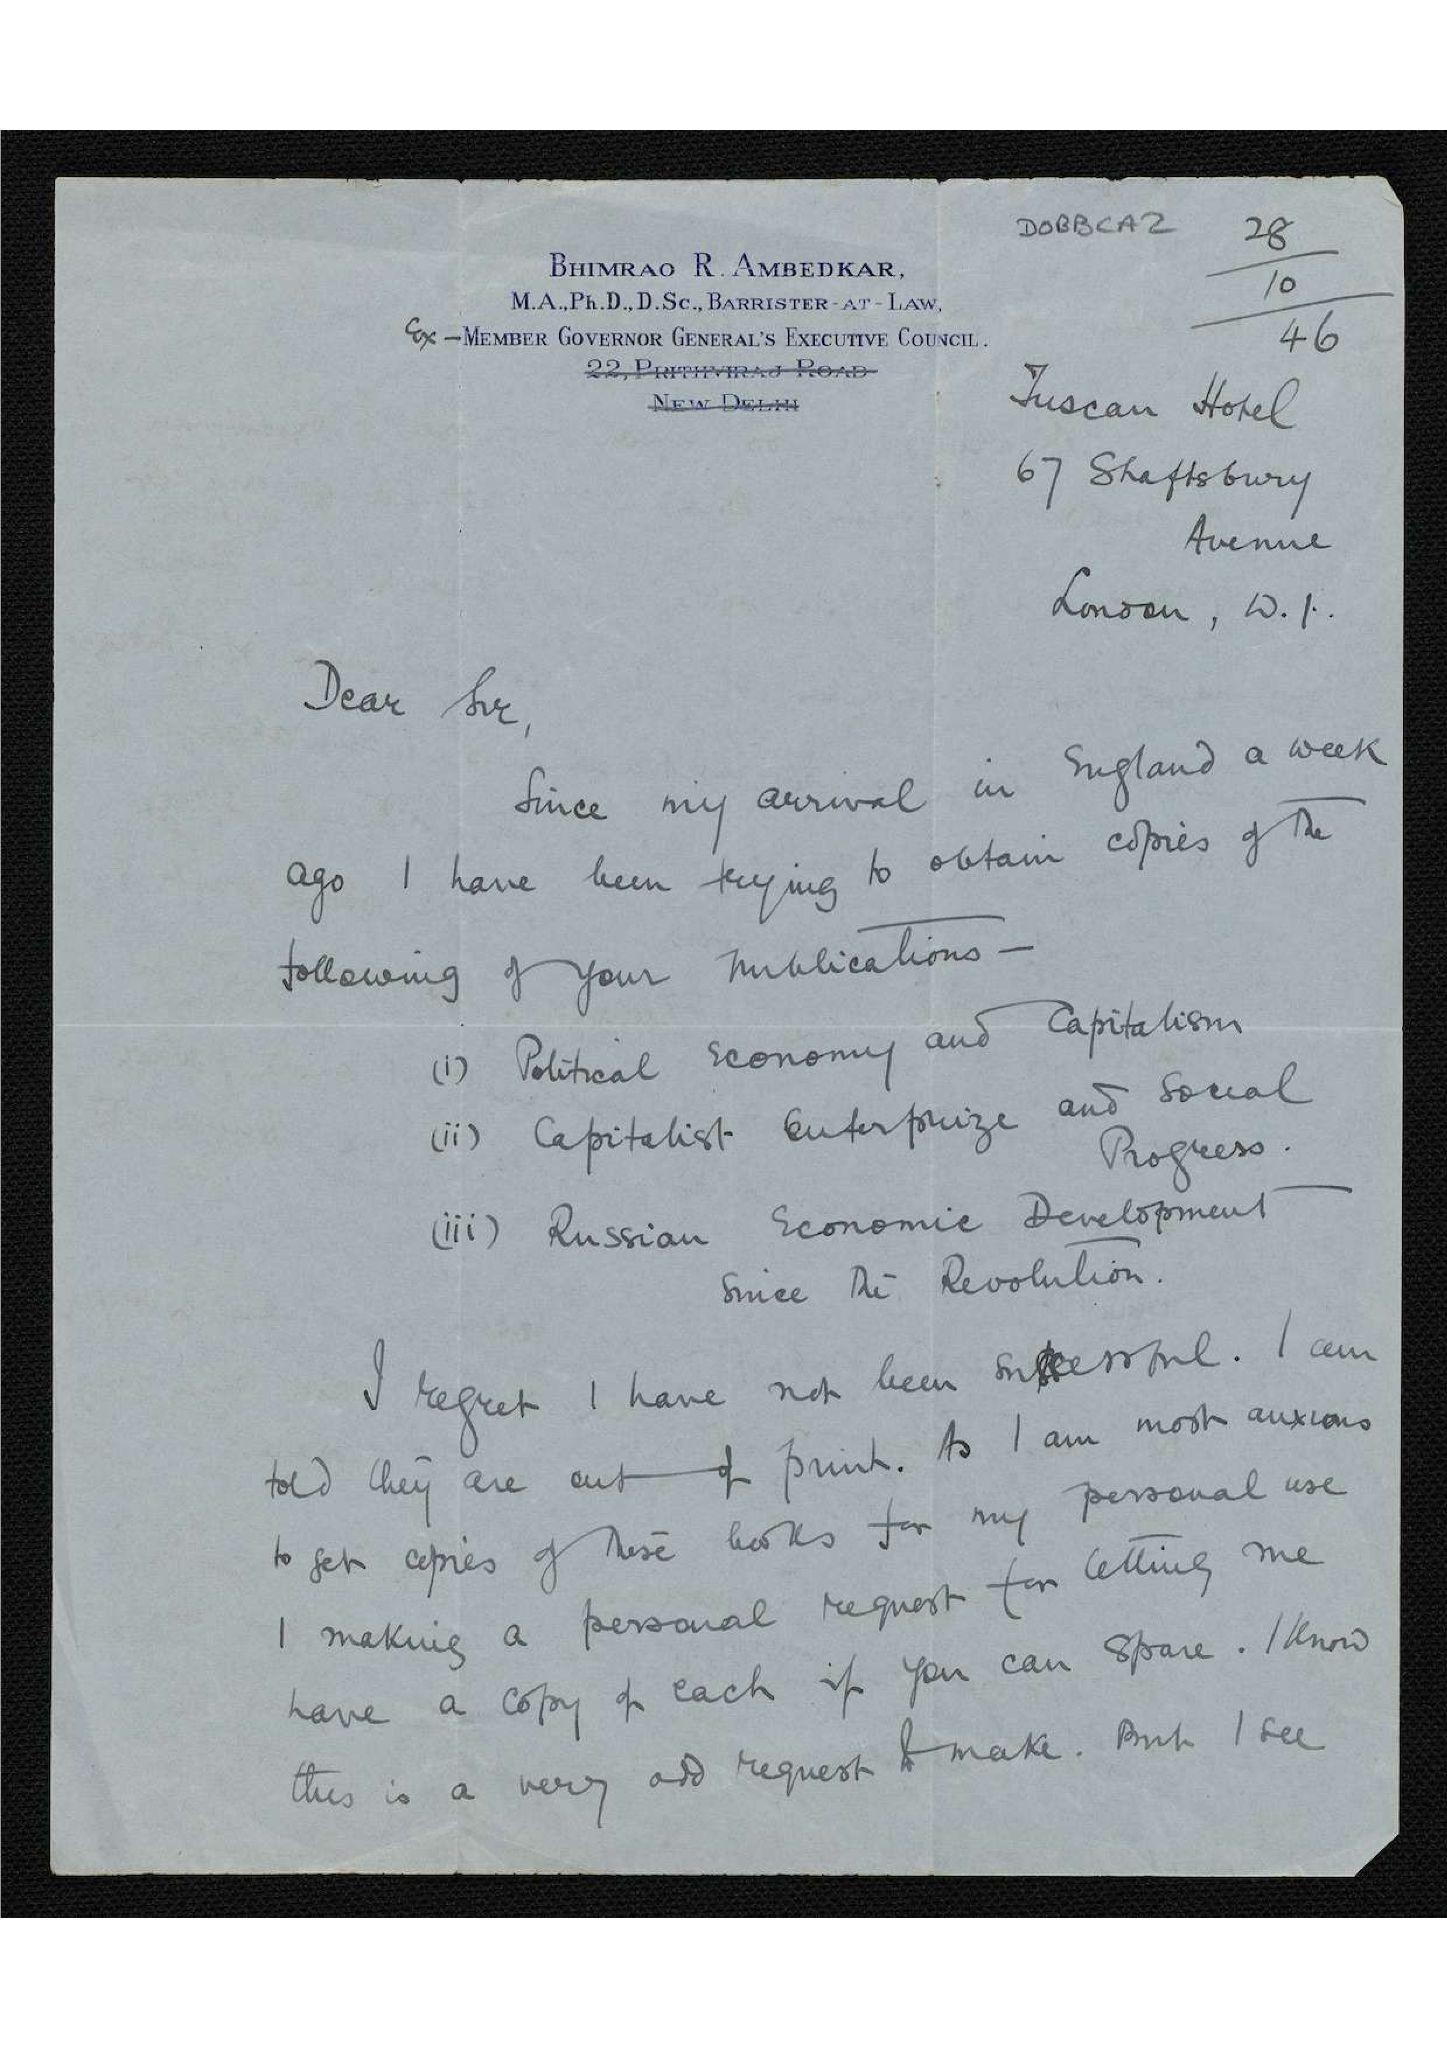 DOBBCA2
28
10
46
BHIMRAO R. AMBEDKAR,
M.A., Ph.D., D.Sc., BARRISTER-AT-LAW,
Ex-MEMBER GOVERNOR GENERAL'S EXECUTIVE COUNCIL.
22, PRITHVIRAJ ROAD
NEW DELHI
Tuscan Hotel
67 Shaftsbury
Avenue
London, W.1.
Dear Sir,
Since my arrival in England a week
ago I have been trying to obtain copies of the
following of your publications—
(i) Political Economy and Capitalism
(ii) Capitalist Enterprize and Social
Progress.
(iii) Russian Economic Development
since the Revolution.
I regret I have not been successful. I am
told they are out of print. As I am most anxious
to get copies of these books for my personal use
I making a personal request for letting me
have a copy of each if you can spare. I know
this is a very odd request to make. But I see